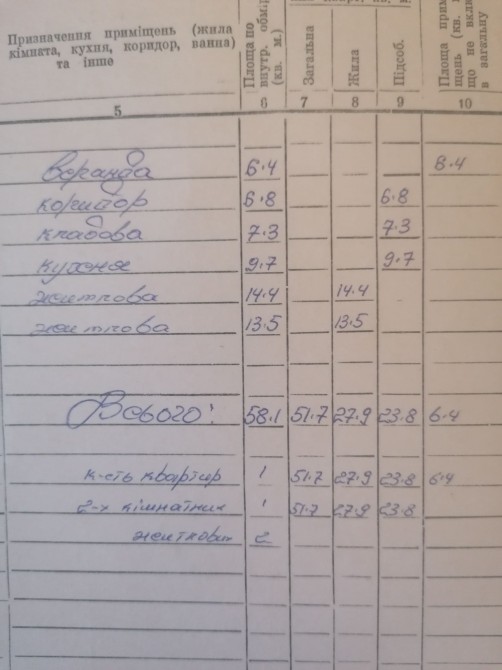 Призначення приміщень (жила кімната, кухня, коридор, ванна) та інше
Площа по внутр. обм. (кв. м.)
Загальна
Жила
Підсоб.
Площа прим щень (кв. що не вкл в загальну
5 6 7 8 9 10
веранда 6.4 8.4
коридор 6.8 6.8
кладова 7.3 7.3
кухоне 9.7 9.7
житлова 14.4 14.4
житлова 13.5 13.5
Всього: 58.1 51.7 27.9 23.8 6.4
к-сть квартир 1 51.7 27.9 23.8 6.4
2-х кімнатних 1 51.7 27.9 23.8
житлових 2